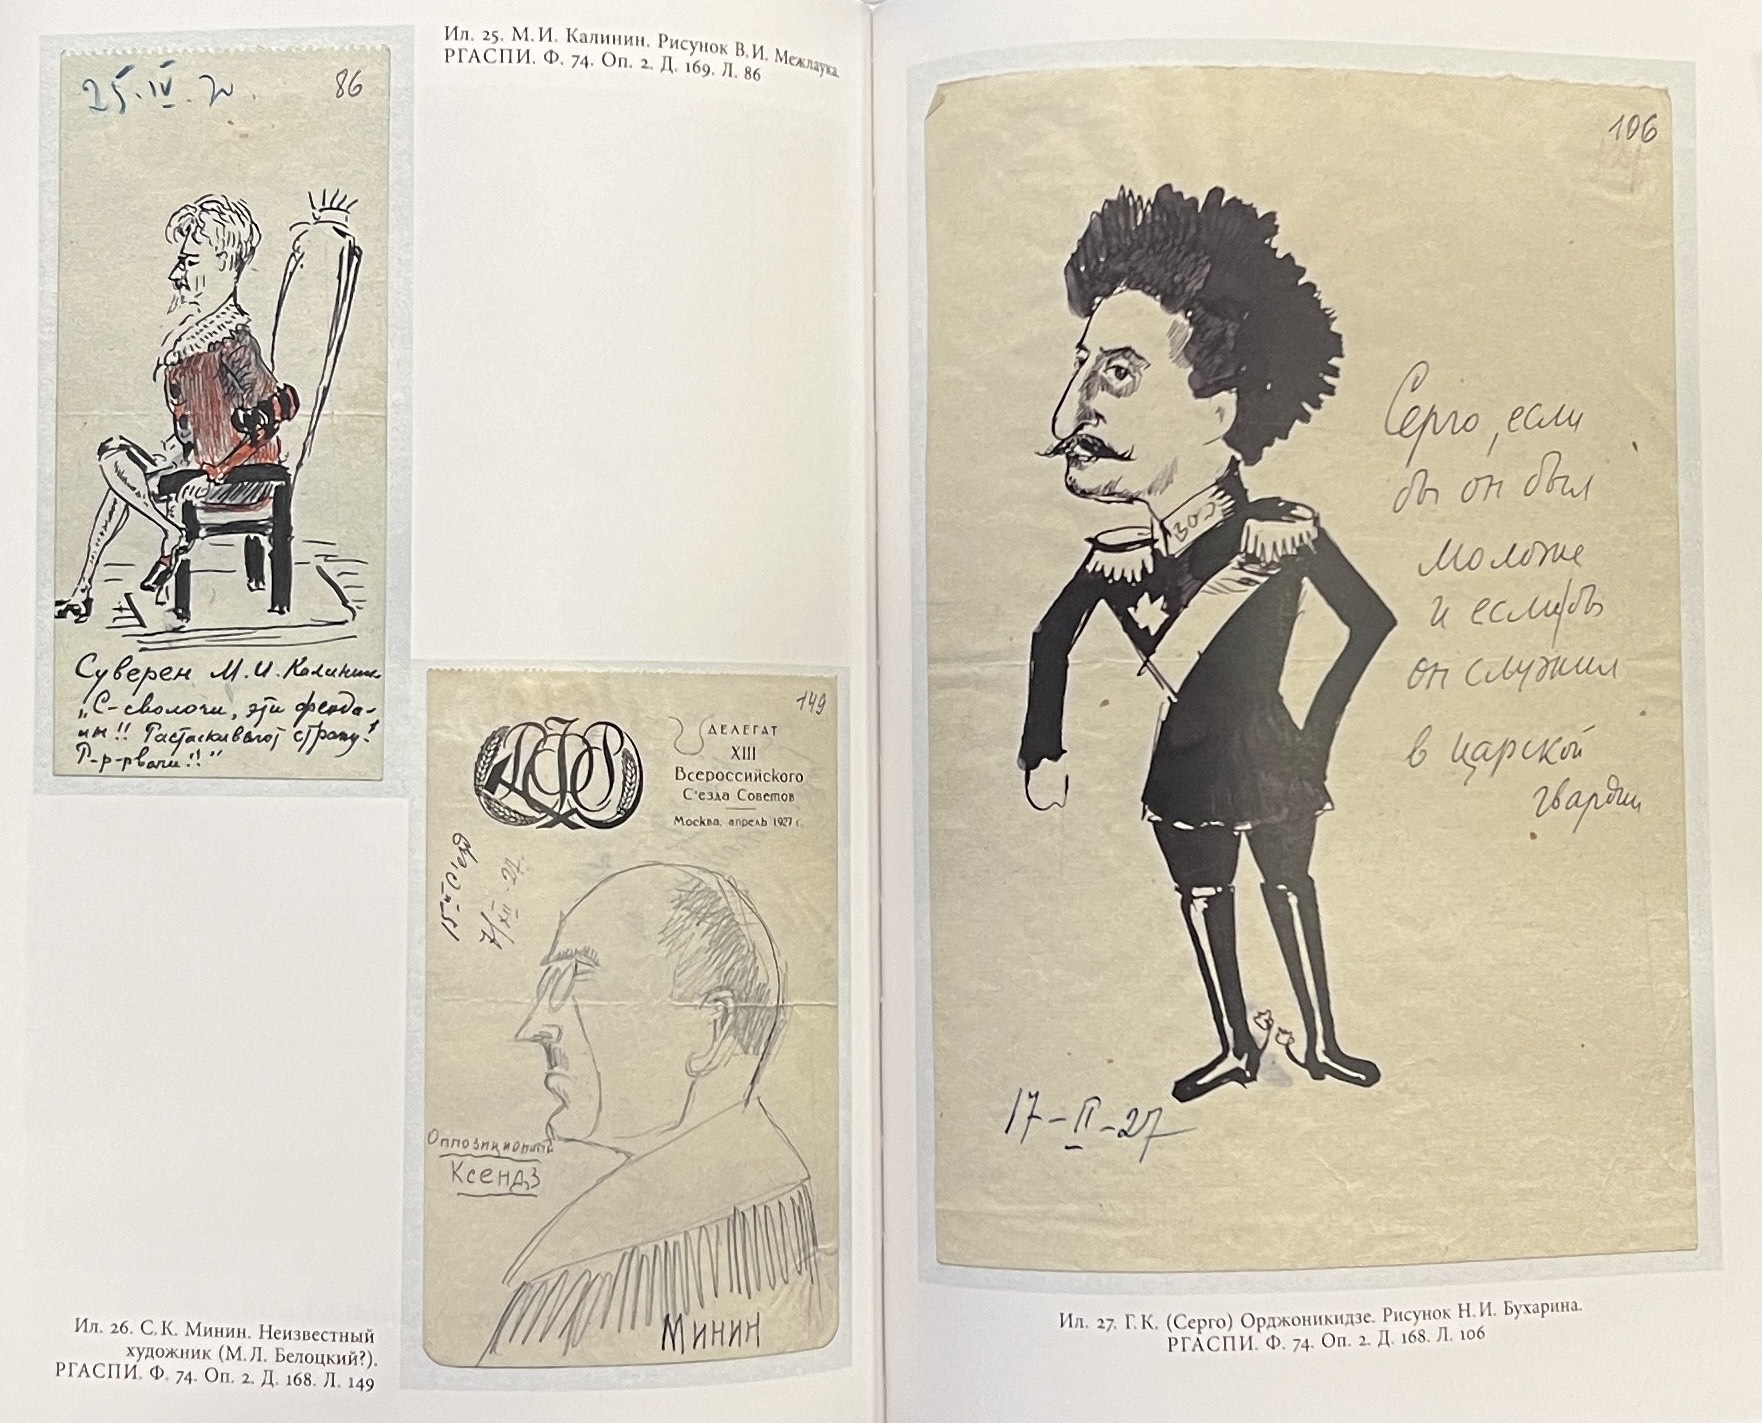 Ил. 25. М.И. Калинин. Рисунок В.И. Межлаука.
РГАСПИ. Ф. 74. Оп. 2. Д. 169. Л. 86
25.IV.
86
Суверен М.И. Калинин
„С-сволочи, эти феода-
лы!! Растаскивают страну!
Р-р-рвачи!!"
149
ДЕЛЕГАТ
XIII
Всероссийского
С'езда Советов
Москва, апрель 1927 г.
РСФСР
15й С'езд
7/XII-27.
Оппозиционный
Ксендз
Минин
Ил. 26. С.К. Минин. Неизвестный
художник (М.Л. Белоцкий?).
РГАСПИ. Ф. 74. Оп. 2. Д. 168. Л. 149
106
Серго, если
бы он был
моложе
и если бы
он служил
в царской
гвардии
17-II-27
Ил. 27. Г.К. (Серго) Орджоникидзе. Рисунок Н.И. Бухарина.
РГАСПИ. Ф. 74. Оп. 2. Д. 168. Л. 106